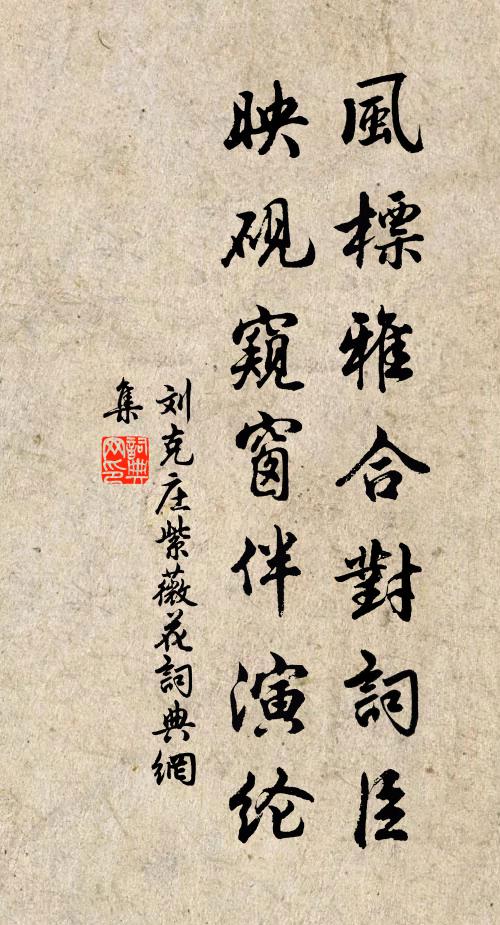 風標雅合對詞臣
映硯窺窗伴演纶
刘克庄紫薇花詞典網
集
詞典网印